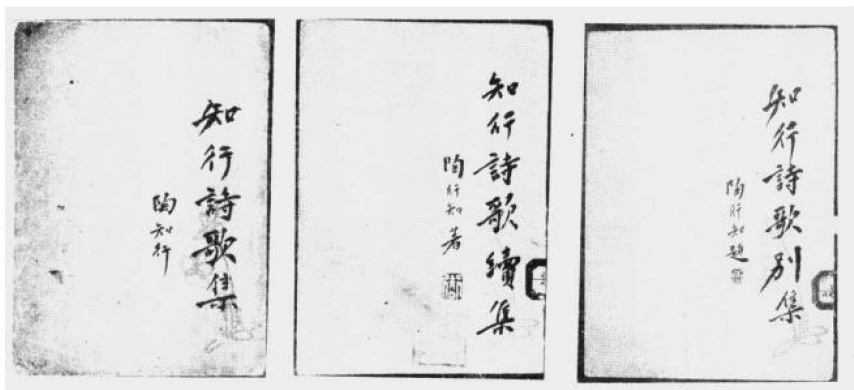 知行詩歌集
陶知行
知行詩歌續集
陶行知著
知行詩歌別集
陶行知題